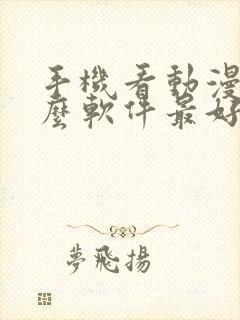 手機看動漫
麼軟件最好
夢飛揚